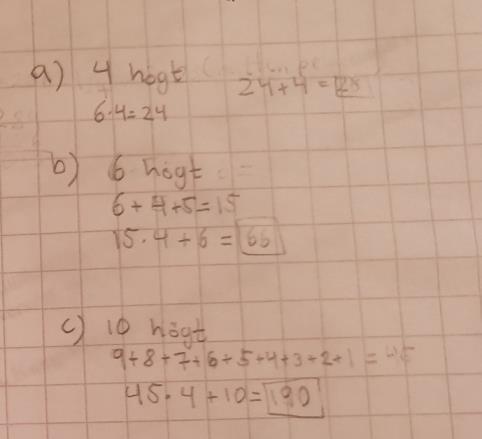 a) 4 högt
24+4=28
6·4=24
b) 6 högt
6+4+5=15
15·4+6=66
c) 10 högt
9+8+7+6+5+4+3+2+1=45
45·4+10=190